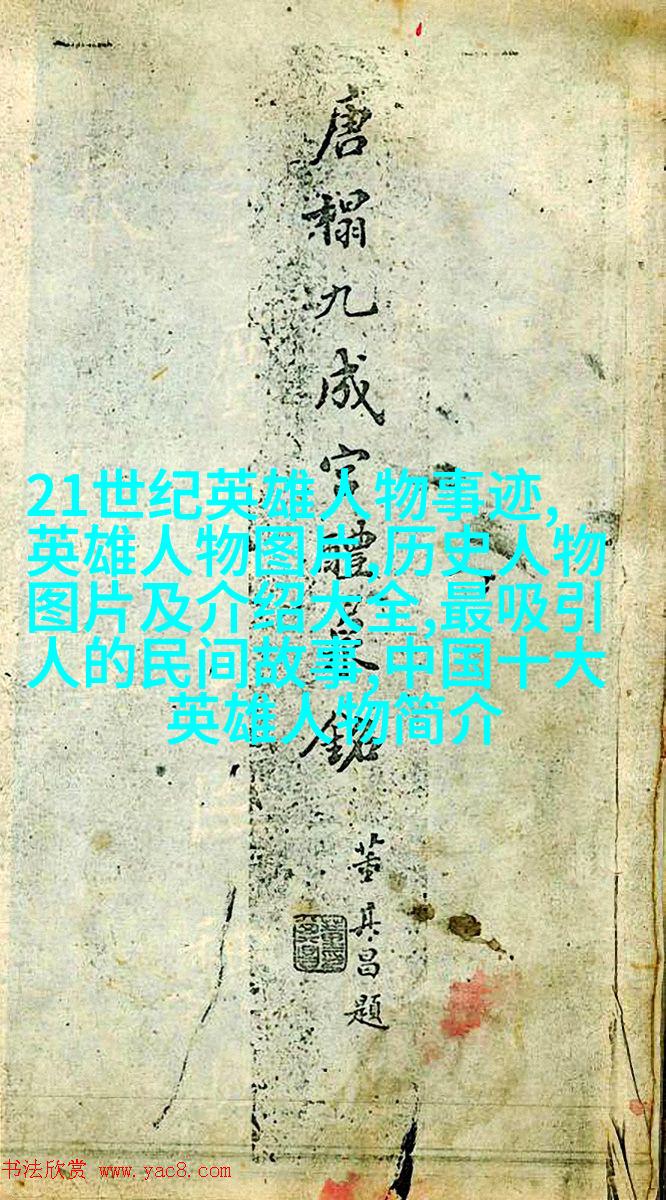 唐榻九成宫醴泉銘
董其昌題
21世纪英雄人物事迹,
英雄人物图片,历史人物
图片及介绍大全,最吸引
人的民间故事,中国十大
英雄人物简介
书法欣赏 www.yac8.com